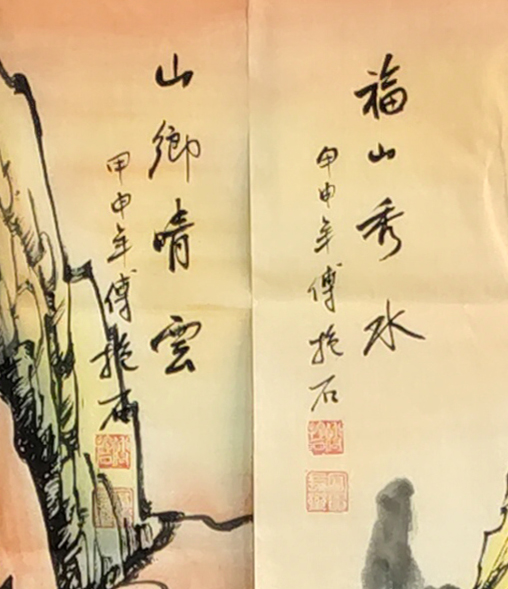 福山秀水
甲申年傅抱石
山鄉晴雲
甲申年傅抱石